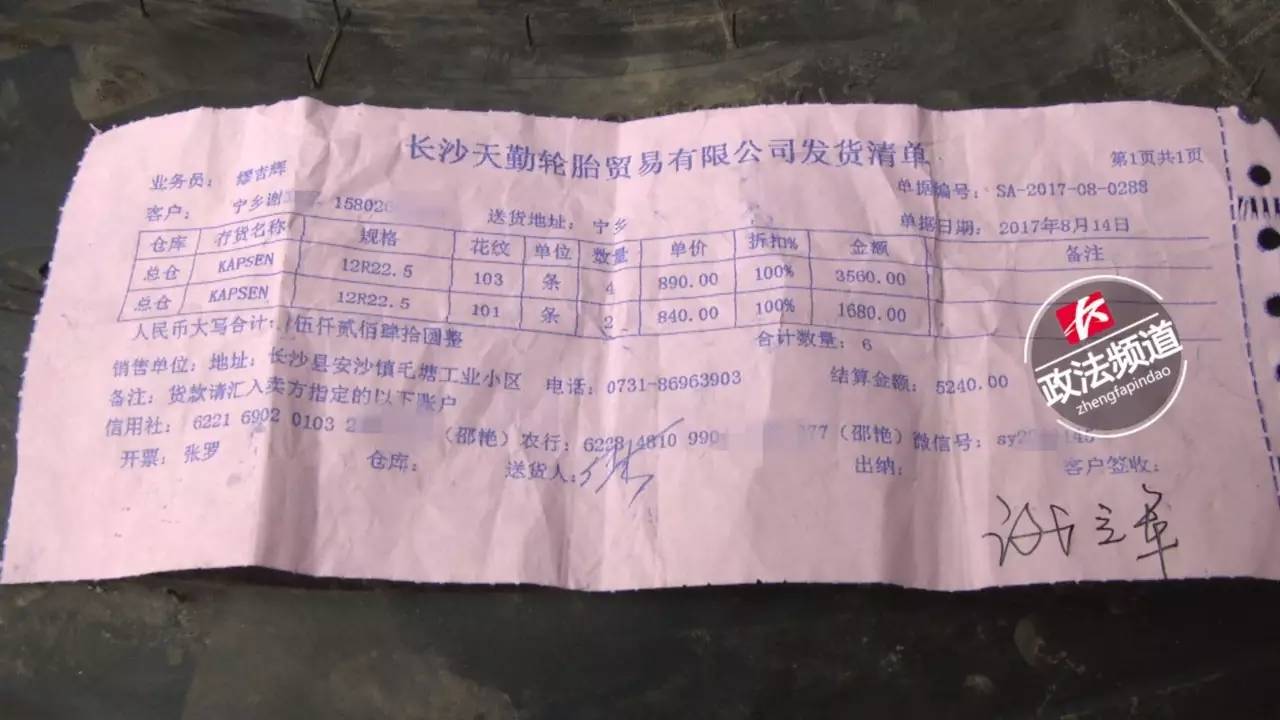 长沙天勤轮胎贸易有限公司发货清单 第1页共1页
业务员: 缪吉辉 单据编号: SA-2017-08-0288
客户: 宁乡谢 15802 送货地址: 宁乡 单据日期: 2017年8月14日
仓库 存货名称 规格 花纹 单位 数量 单价 折扣% 金额 备注
总仓 KAPSEN 12R22.5 103 条 4 890.00 100% 3560.00
总仓 KAPSEN 12R22.5 101 条 2 840.00 100% 1680.00
人民币大写合计: 伍仟贰佰肆拾圆整 合计数量: 6
销售单位: 地址: 长沙县安沙镇毛塘工业小区 电话: 0731-86963903 结算金额: 5240.00
备注: 货款请汇入卖方指定的以下账户
信用社: 6221 6902 0103 2 (邵艳) 农行: 6228 4810 990 77 (邵艳) 微信号: sy2
开票: 张罗 仓库: 送货人: 出纳: 客户签收:
政法频道
zhengfapindao